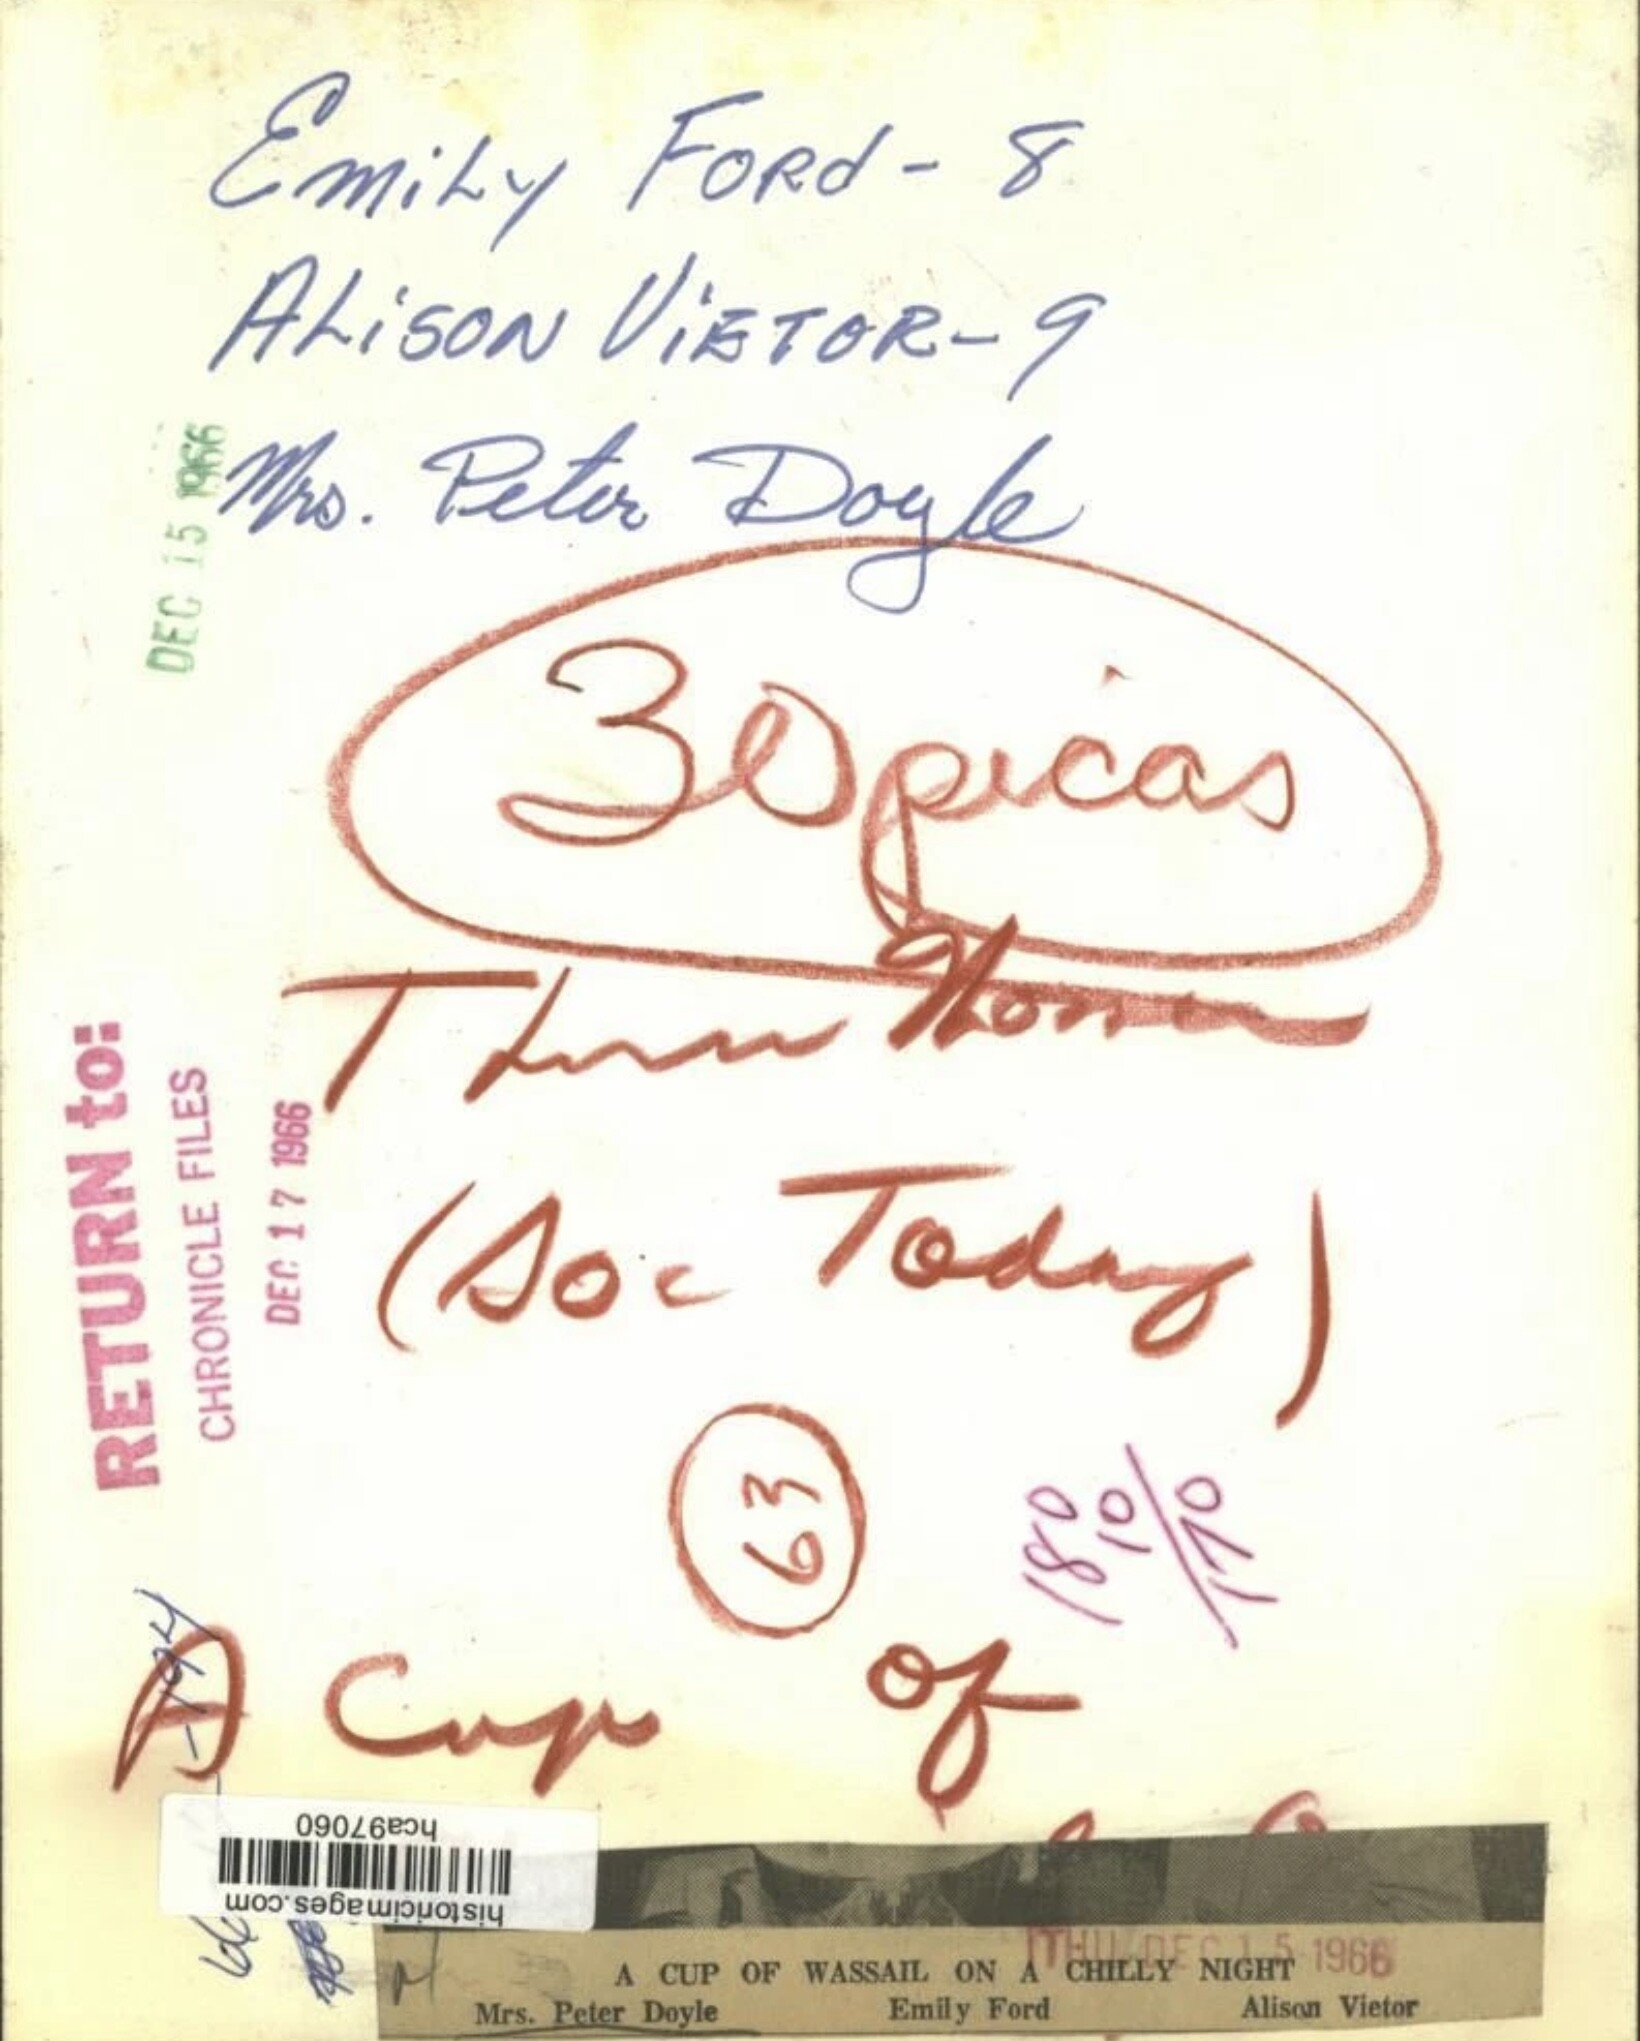 Emily Ford - 8
Alison Vietor - 9
Mrs. Peter Doyle
DEC 15 1966
30 picas
Thurs
(Soc Today)
RETURN to:
CHRONICLE FILES
DEC 17 1966
63
180
10
170
A Cup of
hca97060
historicimages.com
THU DEC 15 1966
A CUP OF WASSAIL ON A CHILLY NIGHT
Mrs. Peter Doyle Emily Ford Alison Vietor